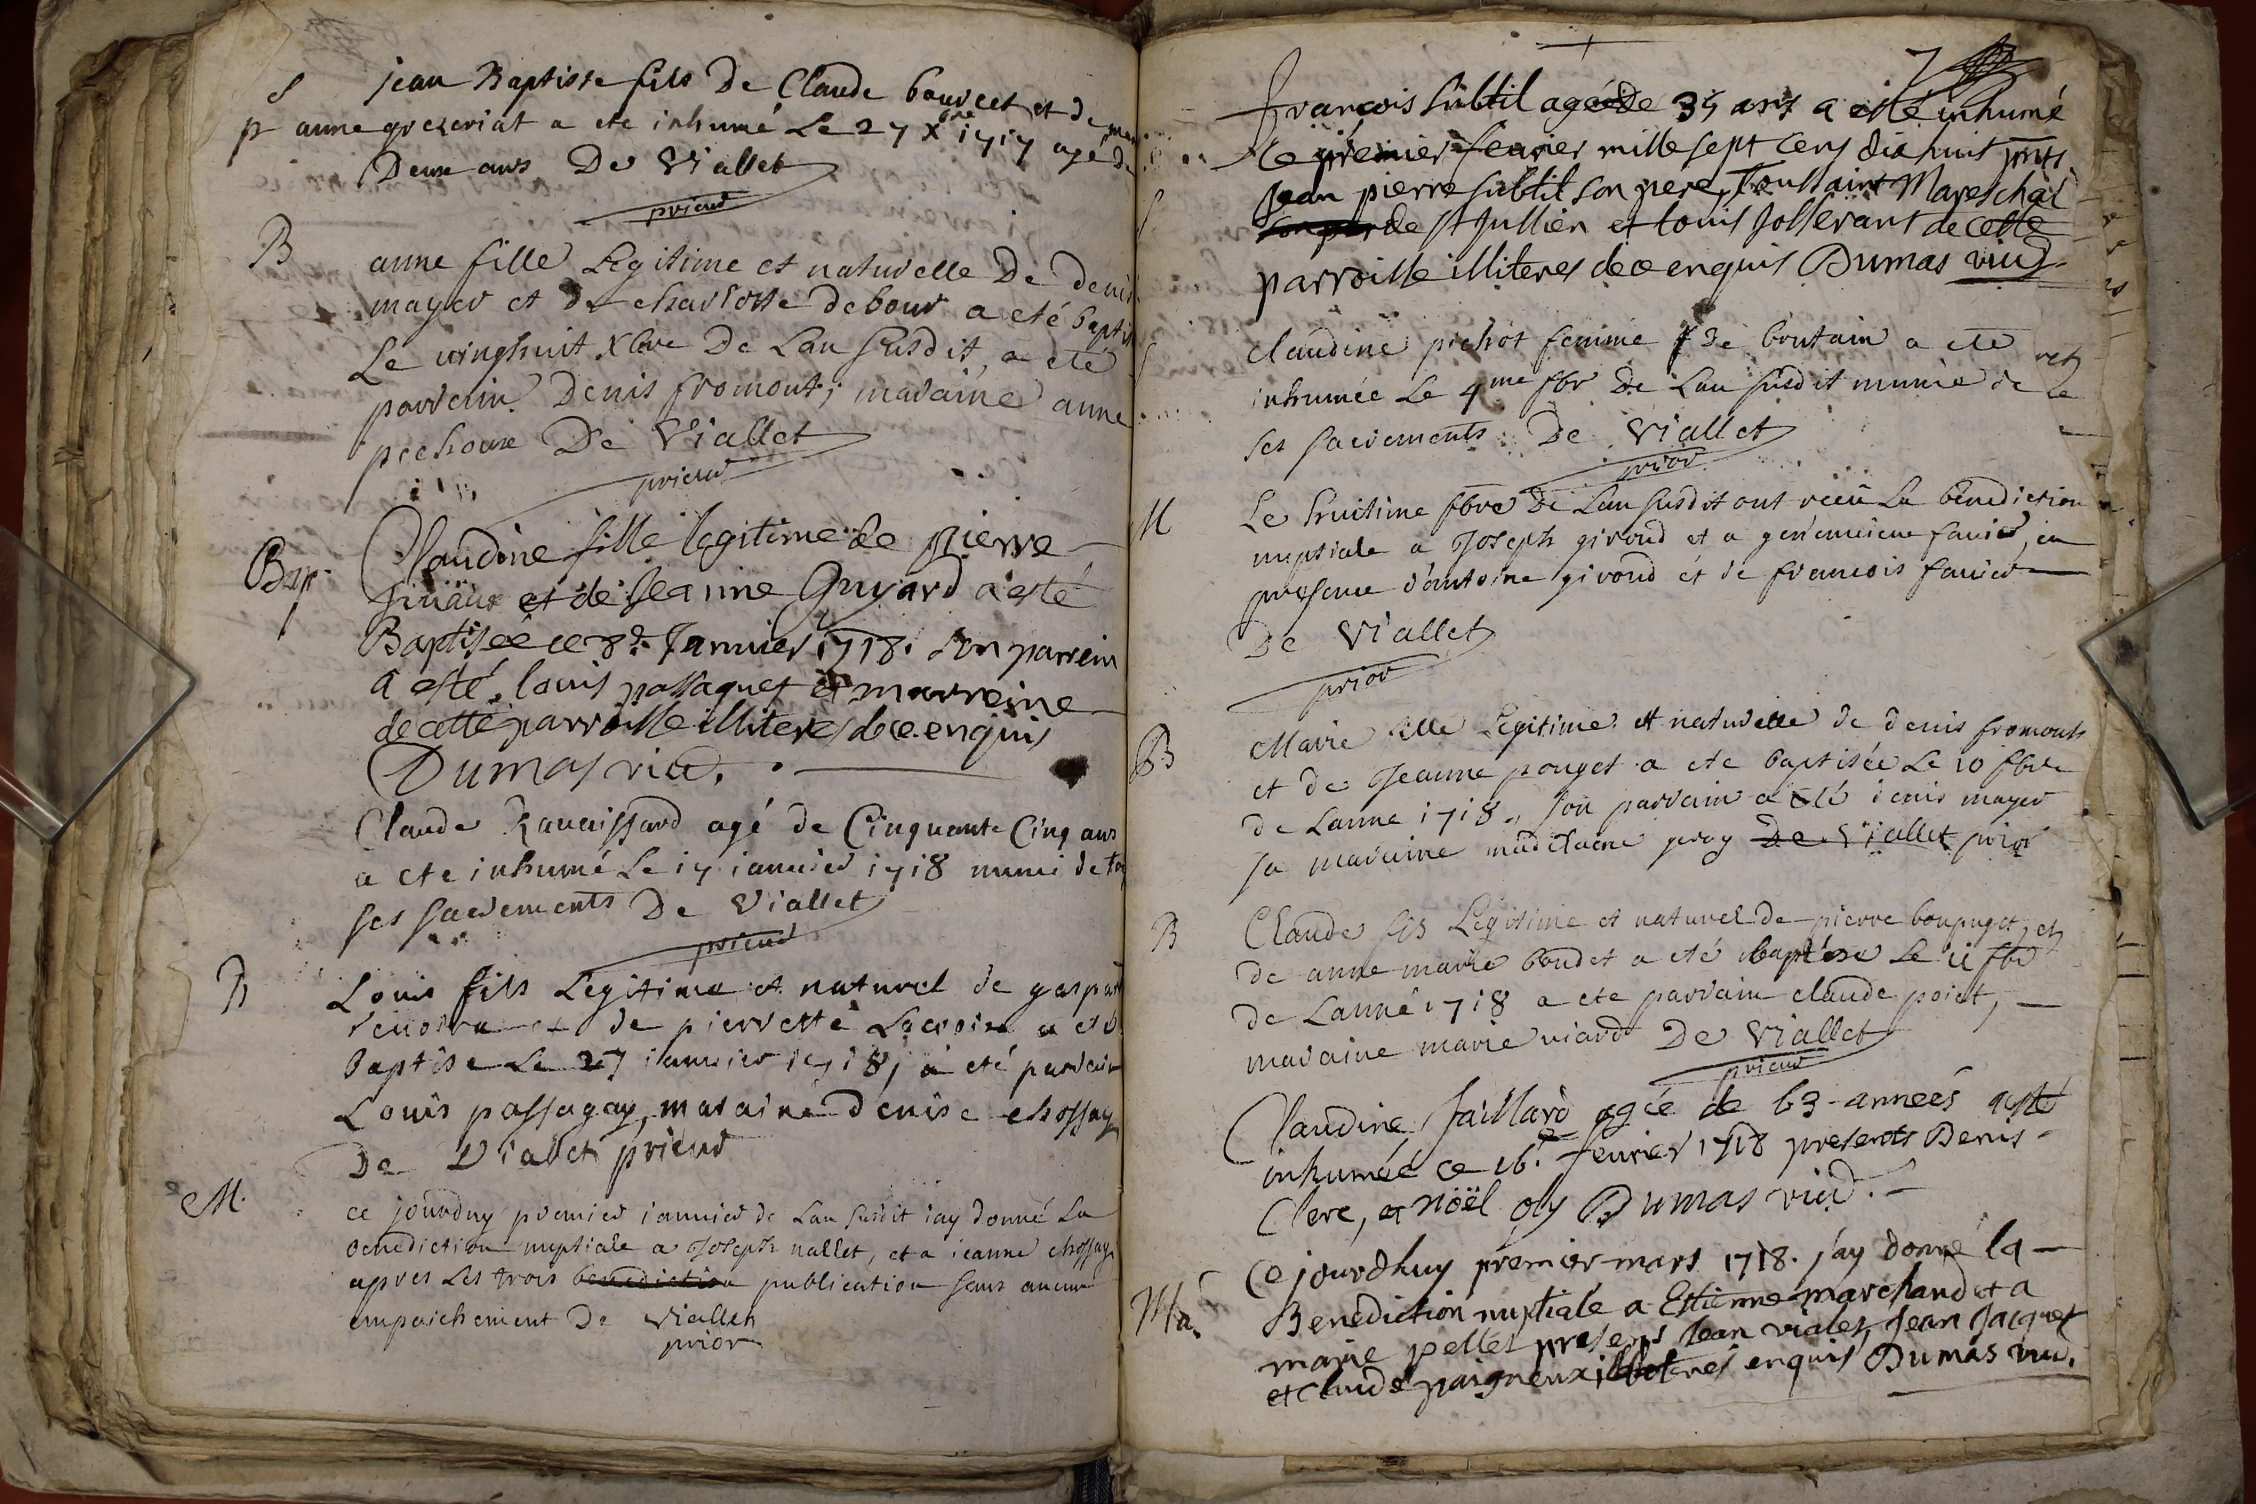 S jean Baptiste fils De Claude bourcet et de
p anne grezeriat a ete inhumé Le 27 Xbre 1717 agé de
Deux ans De Viallet
prieur
B anne fille Legitime et naturelle De denis
mayer et De charlotte debour a eté baptis
Le vinghuit Xbre De Lan susdit, a eté
parrain Denis fromont, maraine anne
pechoux De Viallet
prieur
Bap. Claudine fille legitime de pierre
et de Jeanne Guyard a esté
Baptisée ce 8e. Janvier 1718. son parrein
a esté, louis passaquet et marreine
de cette parroisse illiteres de ce enquis
Dumas vic.
Claude Ravaissard agé de Cinquante Cinq ans
a ete inhumé Le 17 ianvier 1718 muni de
ses sacrements De Viallet
prieur
B Louis fils Legitime et naturel de gaspar
et de pierrette Lacroix a eté
Baptise Le 27 ianvier 1718, a eté parrain
Louis passagay, maraine denise chossay
De Viallet prieur
M. ce jourduy premier ianvier de Lan susdit iay donné La
benediction nuptiale a Joseph nallet, et a ieanne chossay
apres Les trois benediction publication sans aucun
empaichement De Viallet
prior
7
françois subtil agé de 35 ans a esté inhumé
le premier fevrier mille sept cens dix huit pnts
Jean pierre subtil son pere, Toussaint Mareschal
de st Jullien et louis Jollivant de cette
parroisse illiteres de ce enquis Dumas vic.
claudine pichot femme de boutain a ete
inhumée Le 4me fbr De Lan susdit munie de
ses sacrements De Viallet
prior
M Le huitime fbre De Lan susdit ont reçu La benediction
nuptiale a Joseph giroud et a genevieve favier, en
presence d'antoine giroud et de francois favier
De Viallet
prior
B Marie fille Legitime et naturelle de denis fromont
et de Jeanne pouget a ete baptisée Le 10 fbre
de Lanne 1718, son parrain a eté denis mayer
sa maraine madelaine peray De Viallet prior
B Claude fis Legitime et naturel de pierre bonpuget, et
de anne marie boudet a eté baptise Le 11 fbr
de Lanné 1718 a ete parrain claude poict,
maraine marie viard De Viallet
prieur
Claudine Jaillard agée de 63 années a esté
inhumée ce 16e. fevrier 1718 presents Denis
Clerc, et Nöël oly Dumas vic.
Ma. Ce jourdhuy premier mars 1718. j'ay donné la
Benediction nuptiale a Estienne marchand et a
marie pellet presens Jean vialet, Jean Jacquet
et Claude paigneux, illiteres enquis Dumas vic.